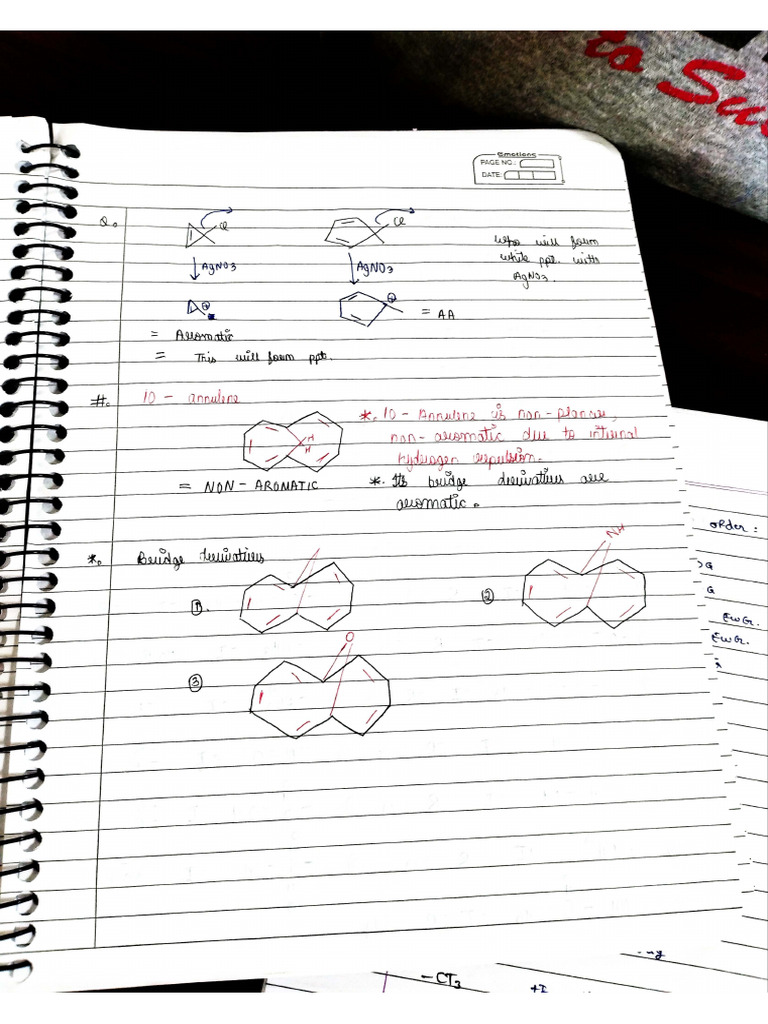 to Su
emotions
PAGE NO.:
DATE:
Q.
Cl
Cl
AgNO3
AgNO3
who will form
white ppt. with
AgNO3.
⊕
⊕
= AA
= Aromatic
= This will form ppt.
#. 10 - annulene
H
H
*. 10 - Annulene is non-planar,
non-aromatic due to internal
hydrogen repulsion.
= NON-AROMATIC
*. Its bridge derivatives are
aromatic.
*. Bridge derivatives
①.
② NH
③ O
order :
G
G
EWG.
EWG.
-CT3
+I